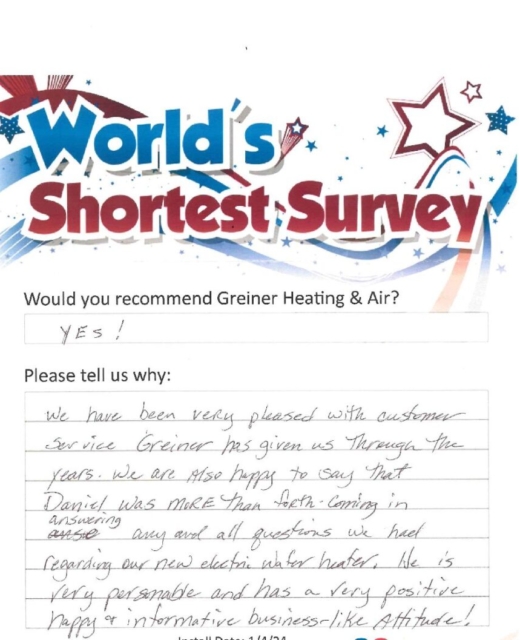 World's
Shortest Survey
Would you recommend Greiner Heating & Air?
YES!
Please tell us why:
We have been very pleased with customer
service Greiner has given us Through the
years. We are Also happy to say that
Daniel was MORE Than forth-coming in
answering
any and all questions we had
regarding our new electric water heater. He is
very personable and has a very positive
happy & informative business-like Attitude!
Install Date: 1/4/24